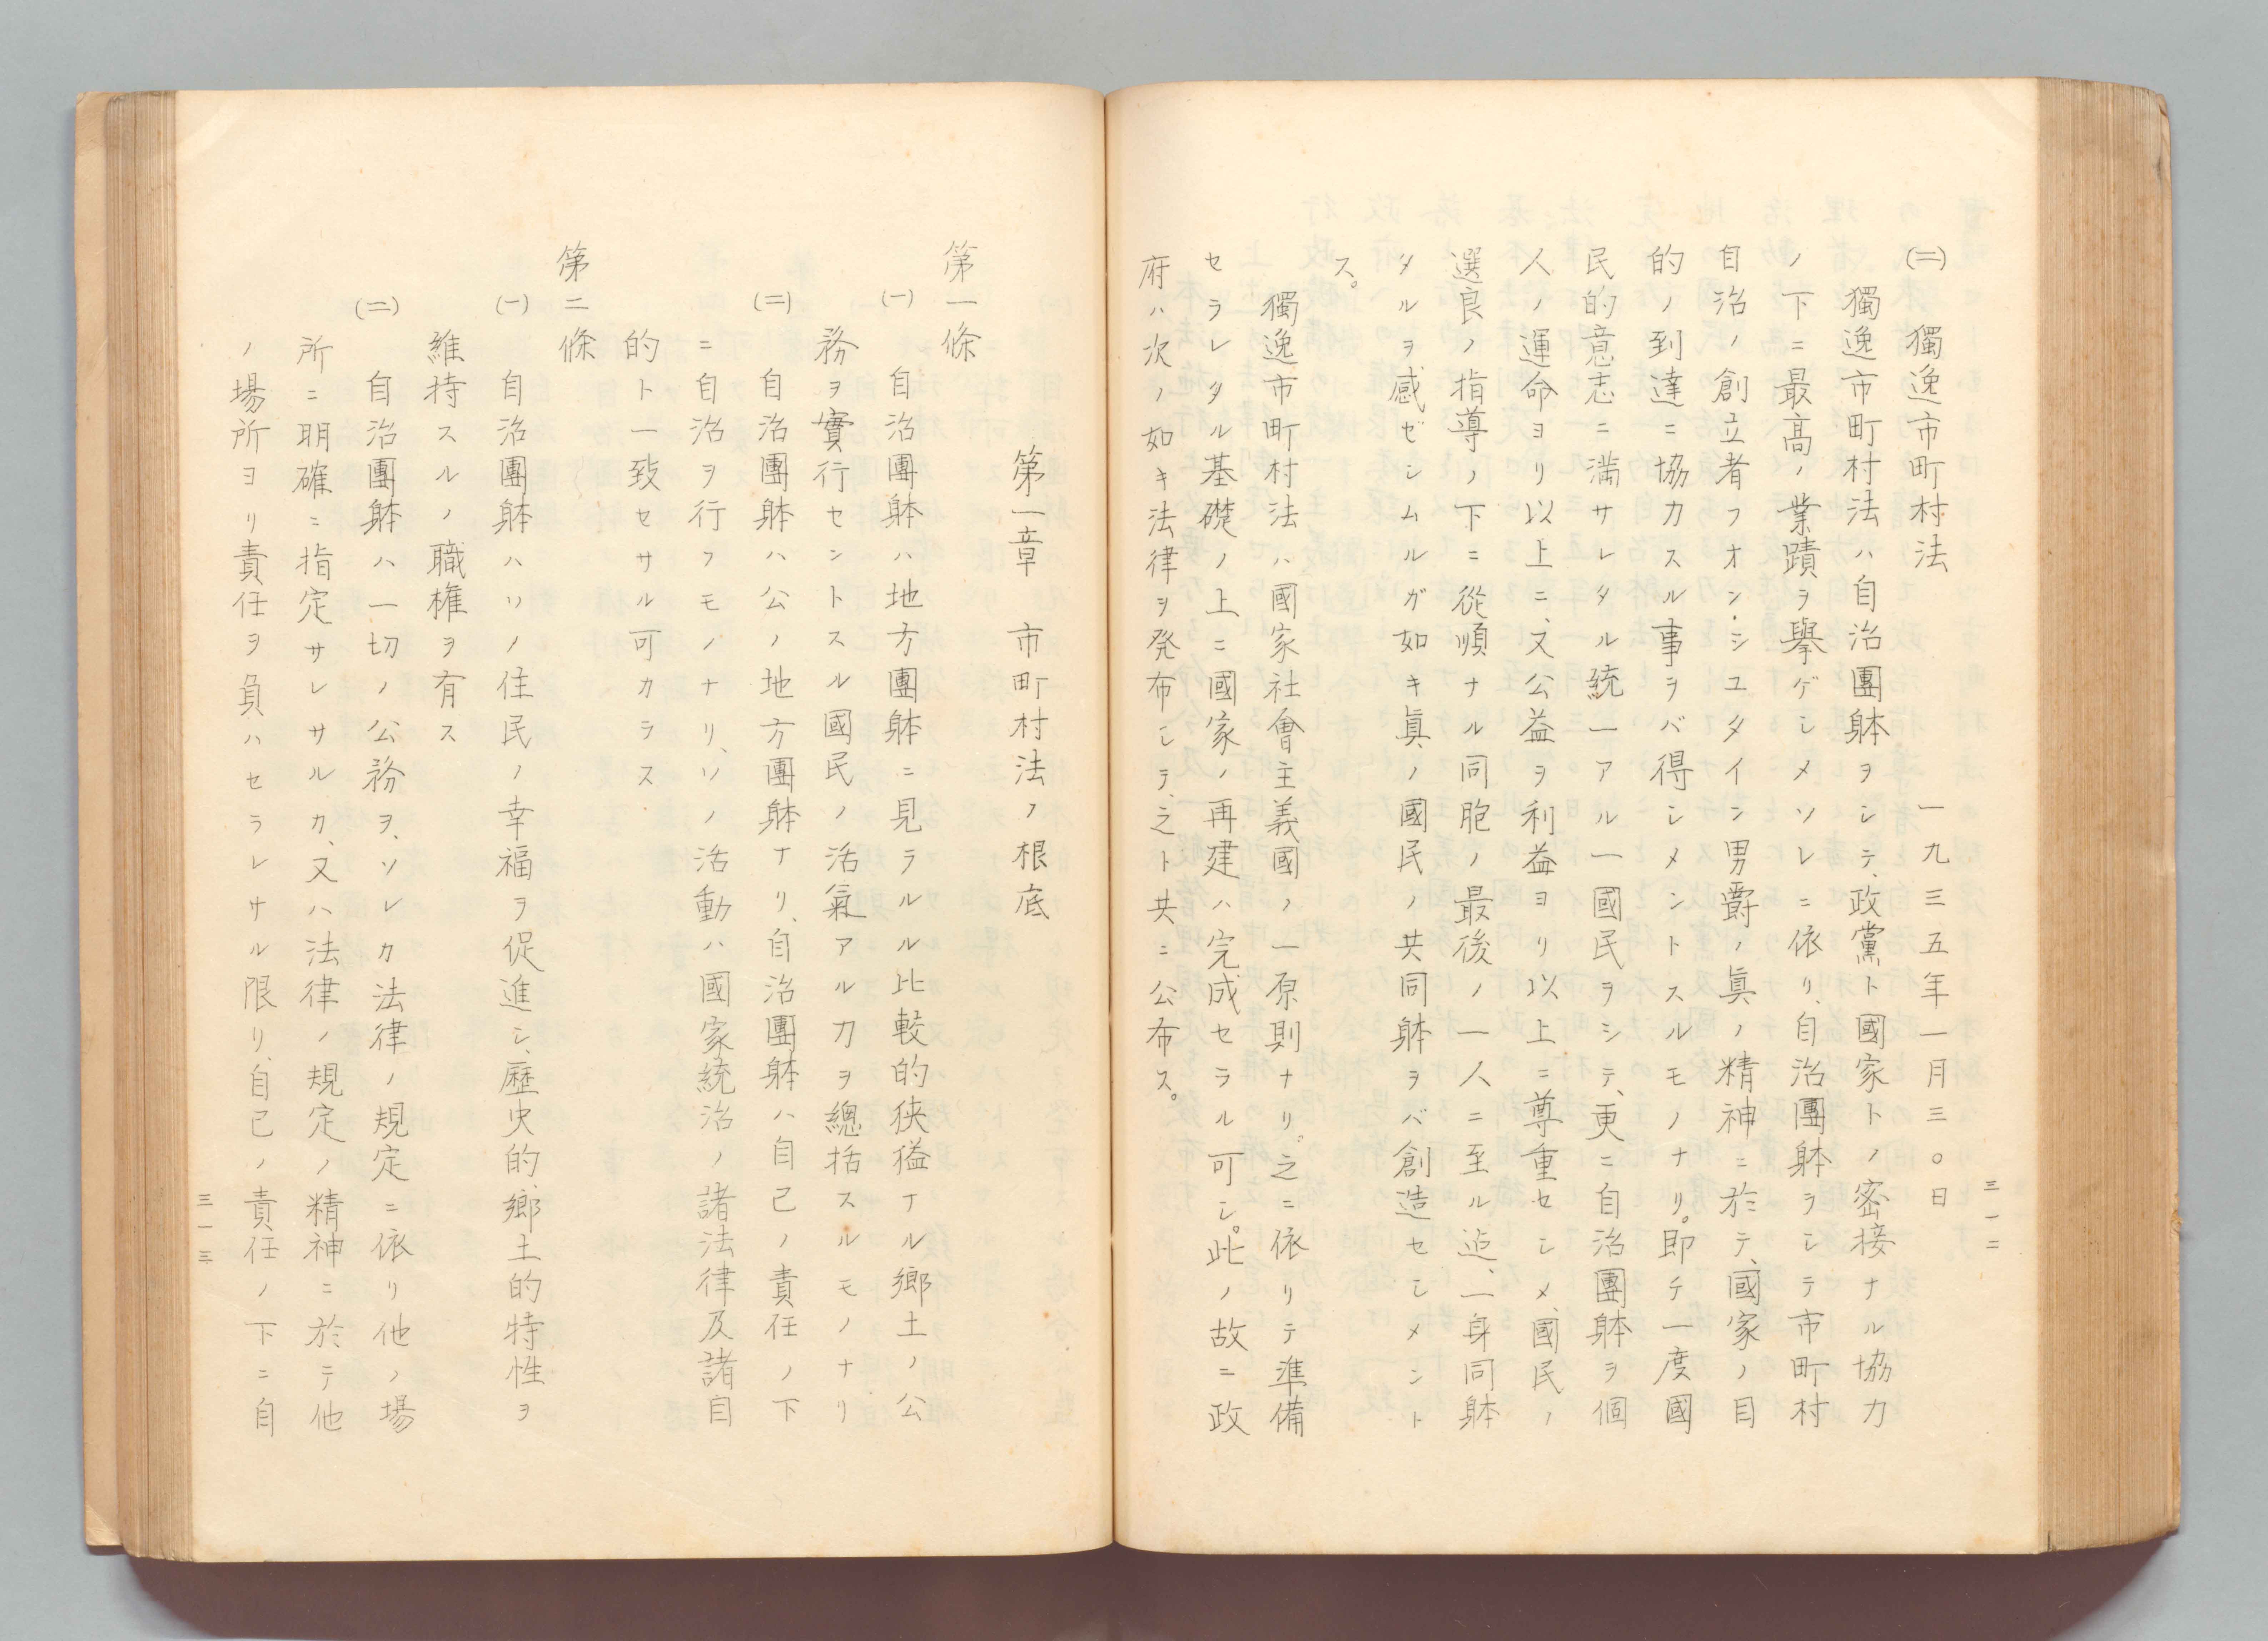 三一二
(二) 獨逸市町村法 一九三五年一月三〇日
獨逸市町村法ハ自治團躰ヲシテ、政黨ト國家トノ密接ナル協力
ノ下ニ最高ノ業蹟ヲ擧ゲシメソレニ依リ、自治團躰ヲシテ市町村
自治ノ創立者フオン・シユタイン男爵ノ眞ノ精神ニ於テ、國家ノ目
的ノ到達ニ協力スル事ヲバ得シメントスルモノナリ。即チ一度國
民的意志ニ満サレタル統一アル一國民ヲシテ、更ニ自治團躰ヲ個
人ノ運命ヨリ以上ニ、又公益ヲ利益ヨリ以上ニ尊重セシメ、國民ノ
選良ノ指導ノ下ニ從順ナル同胞ノ最後ノ一人ニ至ル迄、一身同躰
タルヲ感ゼシムルガ如キ眞ノ國民ノ共同躰ヲバ創造セシメント
ス。
獨逸市町村法ハ國家社會主義國ノ一原則ナリ。之ニ依リテ準備
セラレタル基礎ノ上ニ國家ノ再建ハ完成セラル可シ。此ノ故ニ政
府ハ次ノ如キ法律ヲ発布シラ、之ト共ニ公布ス。
第一章 市町村法ノ根底
第一條
(一) 自治團躰ハ地方團躰ニ見ラルル比較的狭隘ナル郷土ノ公
務ヲ實行セントスル國民ノ活氣アル力ヲ總括スルモノナリ
(二) 自治團躰ハ公ノ地方團躰ナリ、自治團躰ハ自己ノ責任ノ下
ニ自治ヲ行フモノナリ、ソノ活動ハ國家統治ノ諸法律及諸目
的ト一致セサル可カラス
第二條
(一) 自治團躰ハソノ住民ノ幸福ヲ促進シ、歴史的、郷土的特性ヲ
維持スルノ職権ヲ有ス
(二) 自治團躰ハ一切ノ公務ヲ、ソレカ法律ノ規定ニ依リ他ノ場
所ニ明確ニ指定サレサルカ、又ハ法律ノ規定ノ精神ニ於テ他
ノ場所ヨリ責任ヲ負ハセラレサル限リ、自己ノ責任ノ下ニ自
三一三